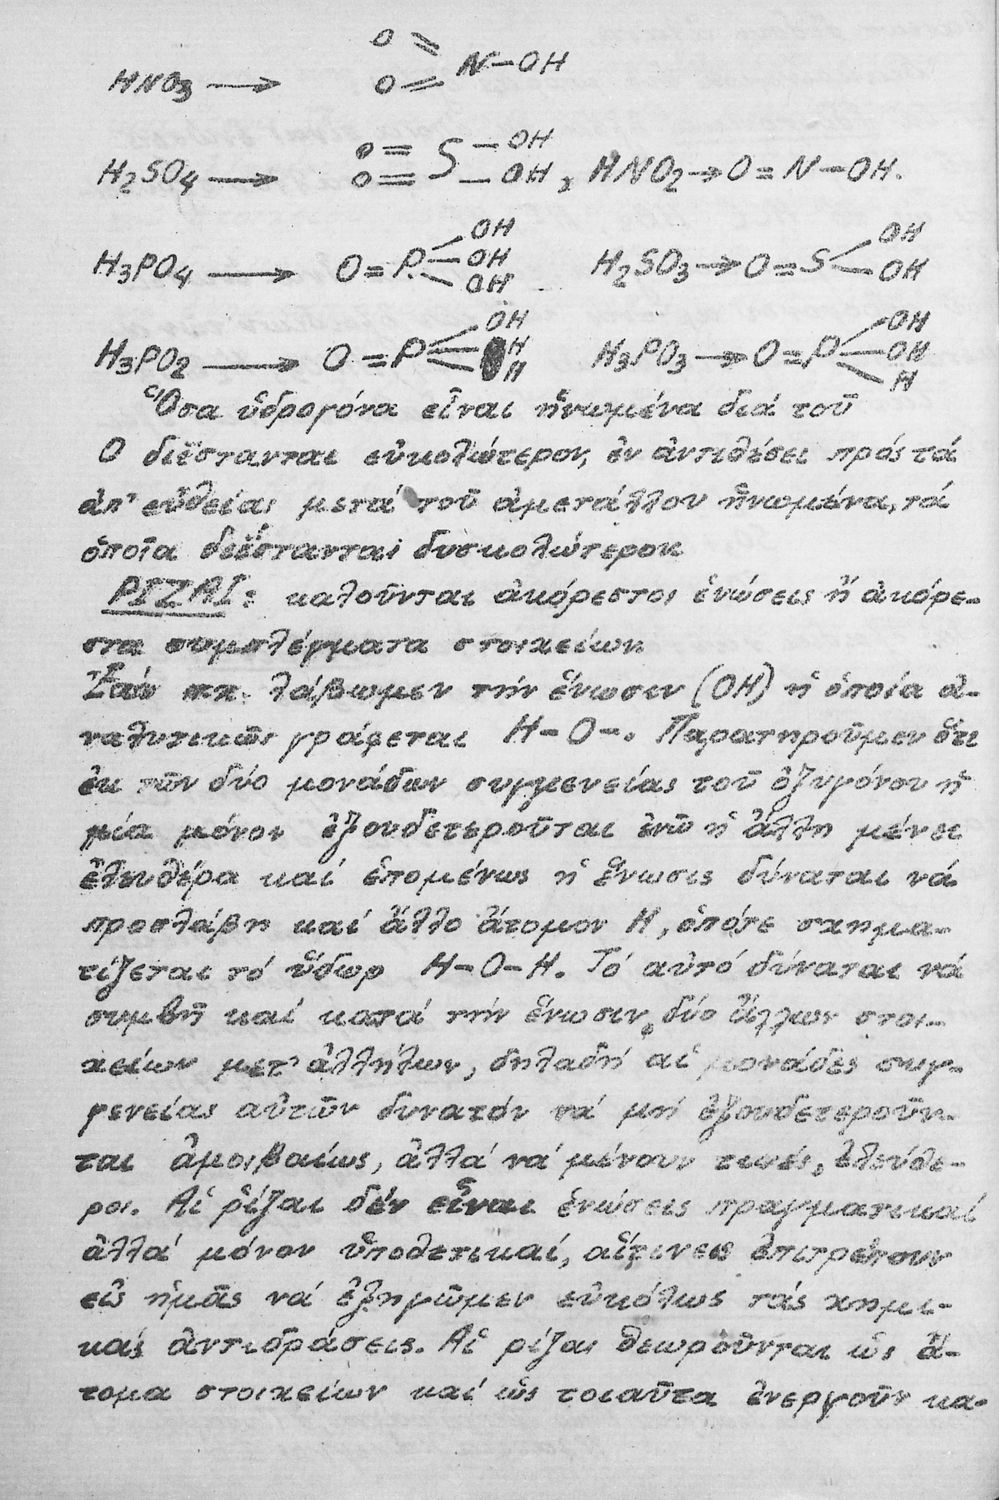 HNO3 → O = O = N-OH
H2SO4 → O = O = S -OH -OH, HNO2 → O = N - OH.
H3PO4 → O = P -OH -OH -OH H2SO3 → O = S -OH -OH
H3PO2 → O = P -OH H H H3PO3 → O = P -OH -OH H
Ὅσα ὑδρογόνα εἶναι ἡνωμένα διά τοῦ
Ο διΐστανται εὐκολώτερον, ἐν ἀντιθέσει πρός τά
ἀπ' εὐθείας μετά τοῦ ἀμετάλλου ἡνωμένα, τά
ὁποῖα διΐστανται δυσκολώτερον
ΡΙΖΑΙ: καλοῦνται ἀκόρεστοι ἑνώσεις ἤ ἀκόρε-
στα συμπλέγματα στοιχείων
Ἐάν πχ. λάβωμεν τήν ἕνωσιν (ΟΗ) ἡ ὁποία ἀ-
ναλυτικῶς γράφεται H-O-. Παρατηροῦμεν ὅτι
ἐκ τῶν δύο μονάδων συγγενείας τοῦ ὀξυγόνου ἡ
μία μόνον ἐξουδετεροῦται ἐνῶ ἡ ἄλλη μένει
ἐλευθέρα καί ἑπομένως ἡ ἕνωσις δύναται νά
προσλάβῃ καί ἄλλο ἄτομον Η, ὁπότε σχημα-
τίζεται τό ὕδωρ H-O-H. Τό αὐτό δύναται νά
συμβῆ καί κατά τήν ἕνωσιν δύο ἄλλων στοι-
χείων μετ' ἀλλήλων, δηλαδή αἱ μονάδες συγ-
γενείας αὐτῶν δυνατόν νά μή ἐξουδετεροῦν-
ται ἀμοιβαίως, ἀλλά νά μένουν τινές, ἐλεύθε-
ροι. Αἱ ῥίζαι δέν εἶναι ἑνώσεις πραγματικαί
ἀλλά μόνον ὑποθετικαί, αἵτινες ἐπιτρέπουν
εἰς ἡμᾶς νά ἐξηγῶμεν εὐκόλως τάς χημι-
κάς ἀντιδράσεις. Αἱ ρίζαι θεωροῦνται ὡς ἄ-
τομα στοιχείων καί ὡς τοιαῦτα ἐνεργοῦν κα-